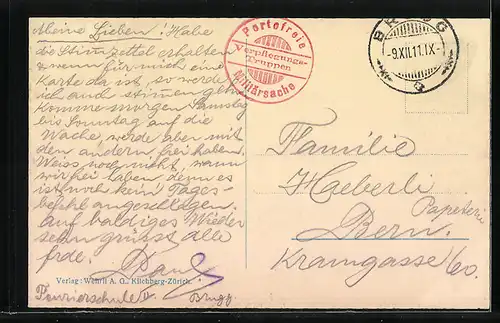 Meine Lieben! Habe
die Stimmzettel erhalten
& wenn für mich eine
Karte da ist, so werde
ich auch stimmen gehn
Komme morgen Samstag
bis Sonntag auf die
Wache, werde aber mit
den andern frei haben.
Weiss noch nicht, wann
wir frei haben denn es
ist noch kein Tages-
befehl angeschlagen.
Auf baldiges Wieder
sehn grüsst alle
Paul
Verlag: Wehrli A. G., Kilchberg-Zürich.
Fourierschule
Brugg.
Portofreie
Verpflegungs-
Truppen
Militärsache
BRUGG
-9.XII.11.IX-
Familie
Haeberli
Papeterie
Bern.
Kramgasse 60.